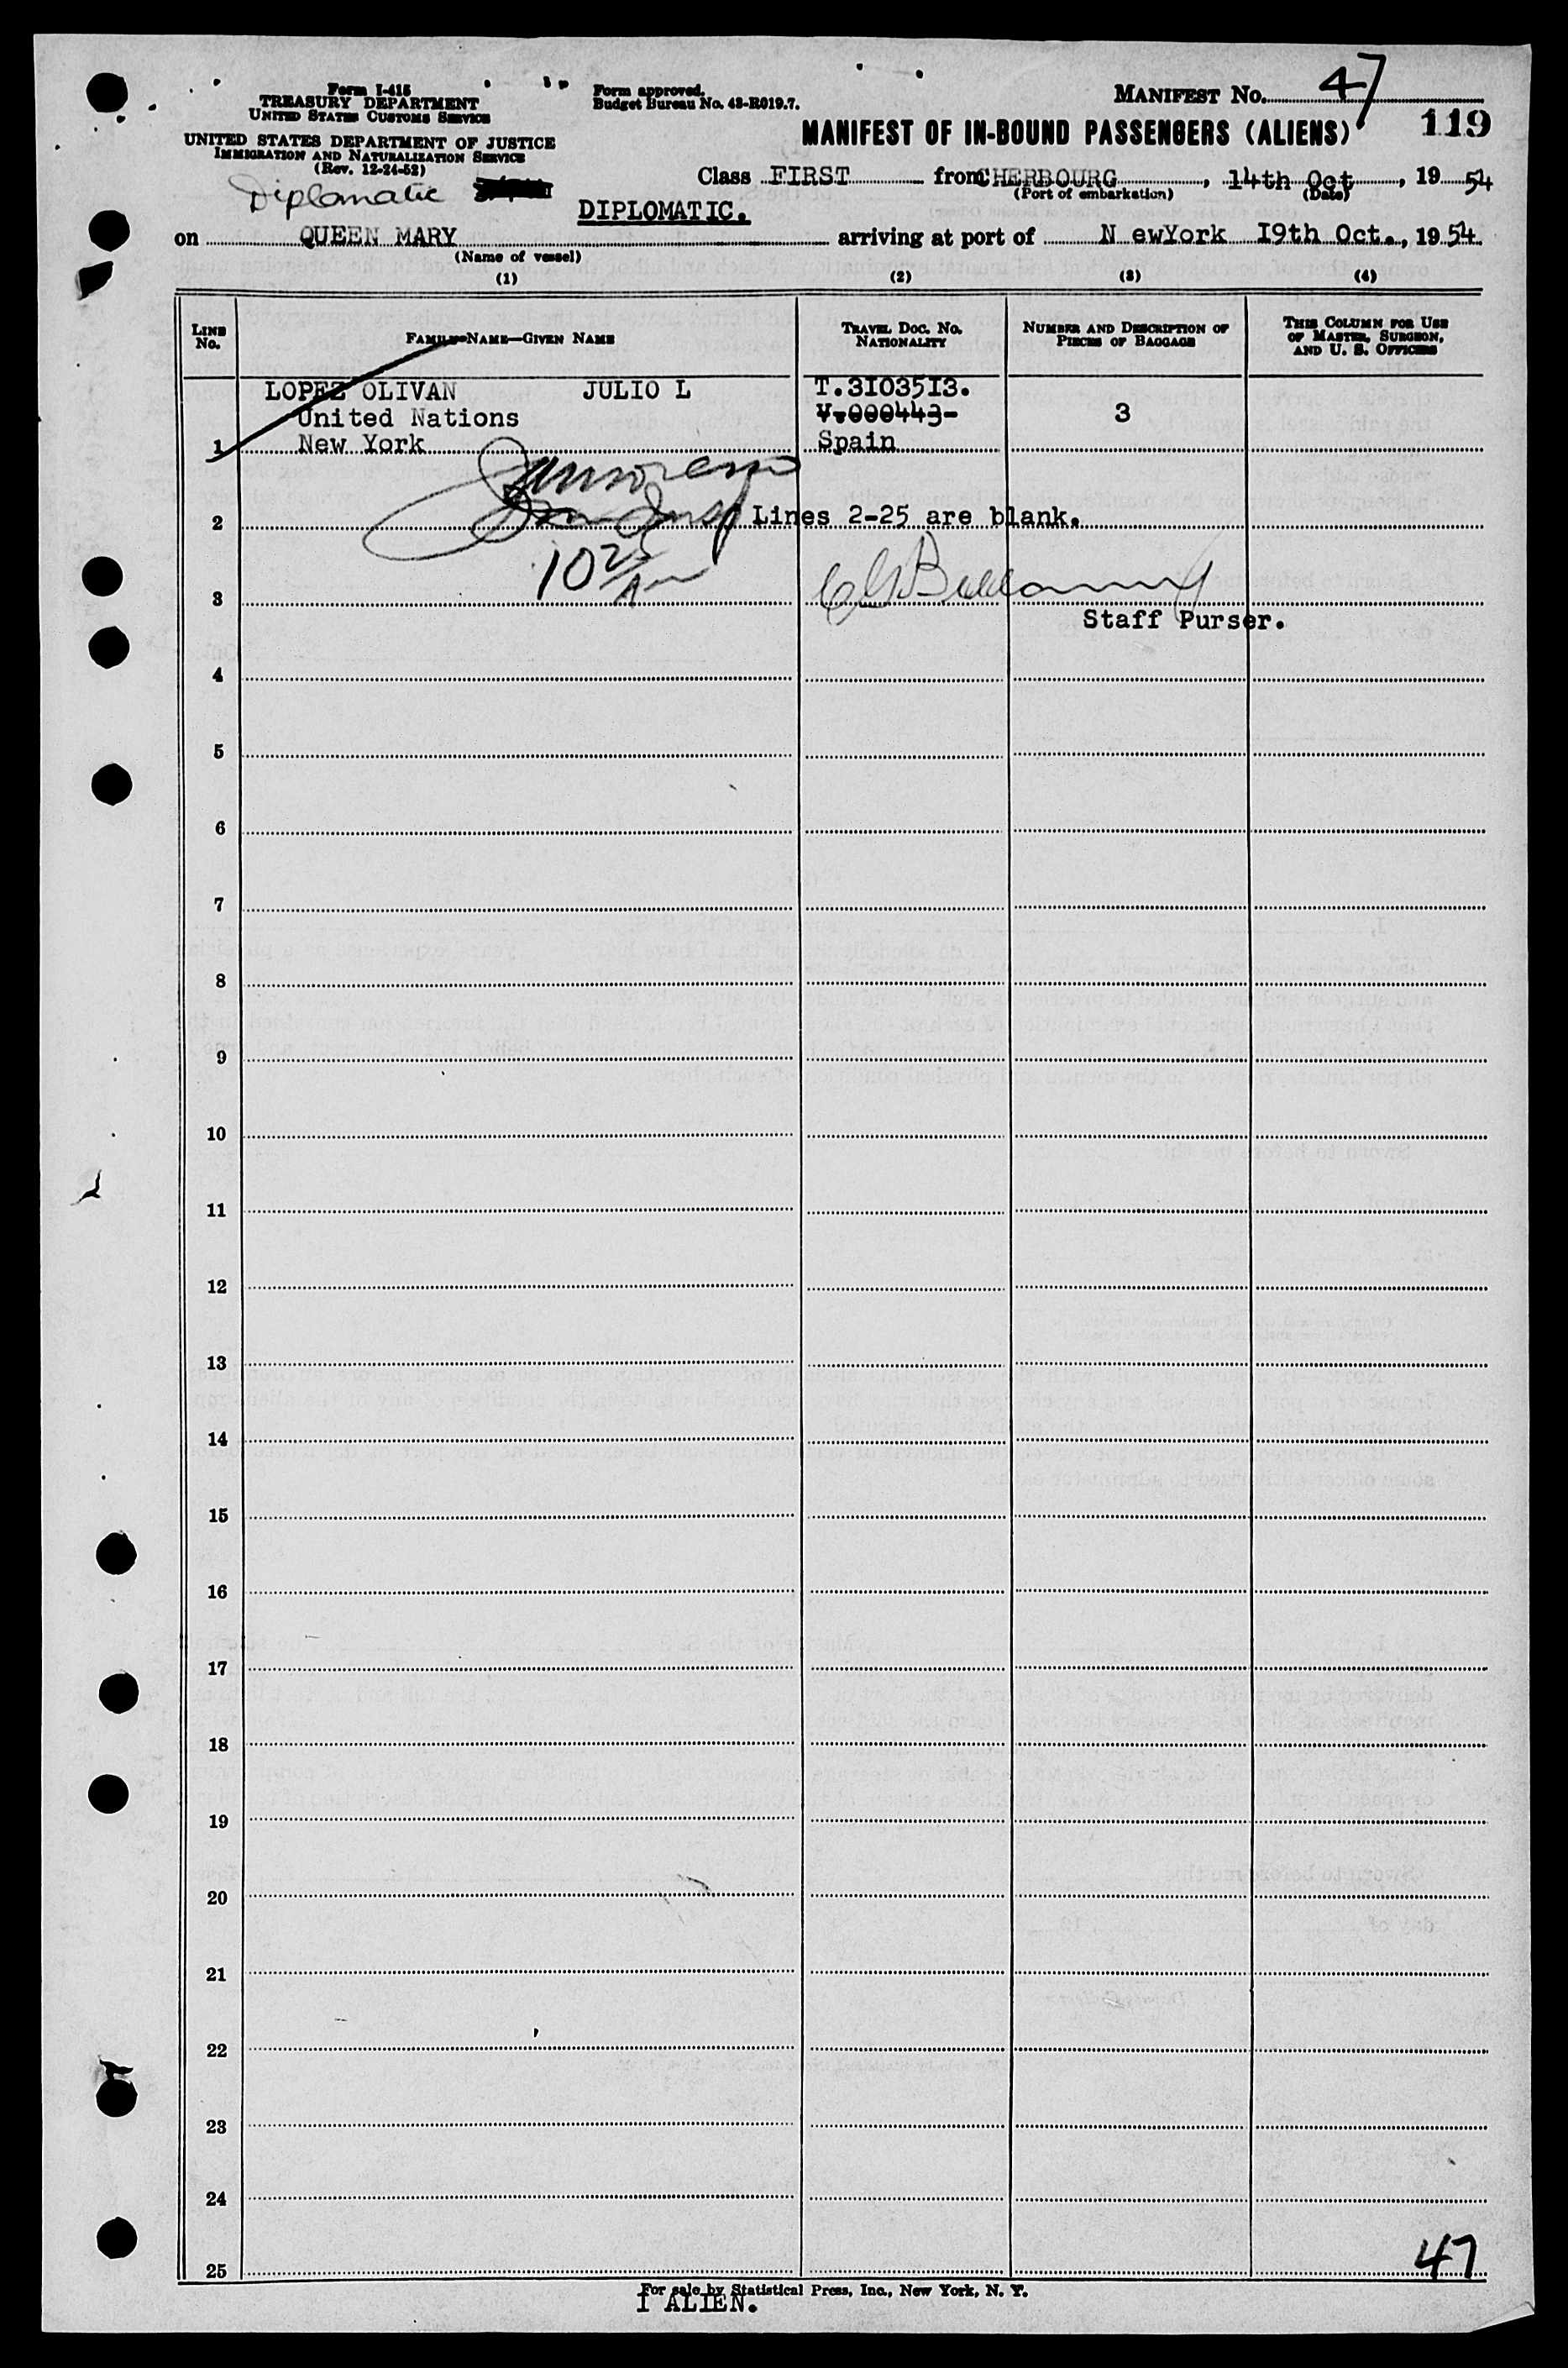 Form I-415
TREASURY DEPARTMENT
UNITED STATES CUSTOMS SERVICE
UNITED STATES DEPARTMENT OF JUSTICE
IMMIGRATION AND NATURALIZATION SERVICE
(Rev. 12-24-52)
Form approved.
Budget Bureau No. 43-R019.7.
MANIFEST No. 47
119
MANIFEST OF IN-BOUND PASSENGERS (ALIENS)
Diplomatic
Class FIRST from CHERBOURG, 14th Oct, 19 54
(Port of embarkation) (Date)
DIPLOMATIC.
on QUEEN MARY arriving at port of N ewYork I9th Oct., 19 54.
(Name of vessel)
(1) (2) (3) (4)
LINE No.
FAMILY NAME—GIVEN NAME
TRAVEL DOC. NO. NATIONALITY
NUMBER AND DESCRIPTION OF PIECES OF BAGGAGE
THIS COLUMN FOR USE OF MASTER, SURGEON, AND U. S. OFFICERS
LOPEZ OLIVAN JULIO L T.3I035I3.
United Nations V.000443- 3
1 New York Spain
2 Lines 2-25 are blank.
10 25 AM
3
Staff Purser.
4
5
6
7
8
9
10
11
12
13
14
15
16
17
18
19
20
21
22
23
24
47
25
For sale by Statistical Press, Inc., New York, N. Y.
I ALIEN.